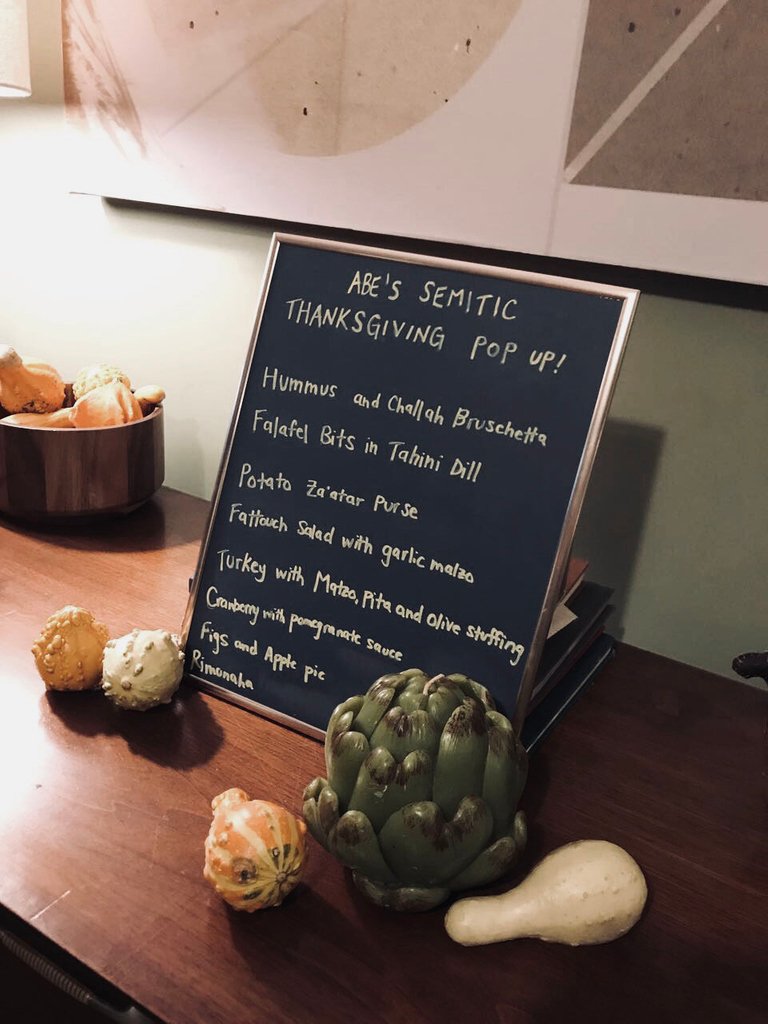 ABE'S SEMITIC
THANKSGIVING POP UP!
Hummus and Challah Bruschetta
Falafel Bits in Tahini Dill
Potato Za'atar Purse
Fattouch Salad with garlic matzo
Turkey with Matzo, Pita and olive stuffing
Cranberry with pomegranate sauce
Figs and Apple pie
Rimonaha